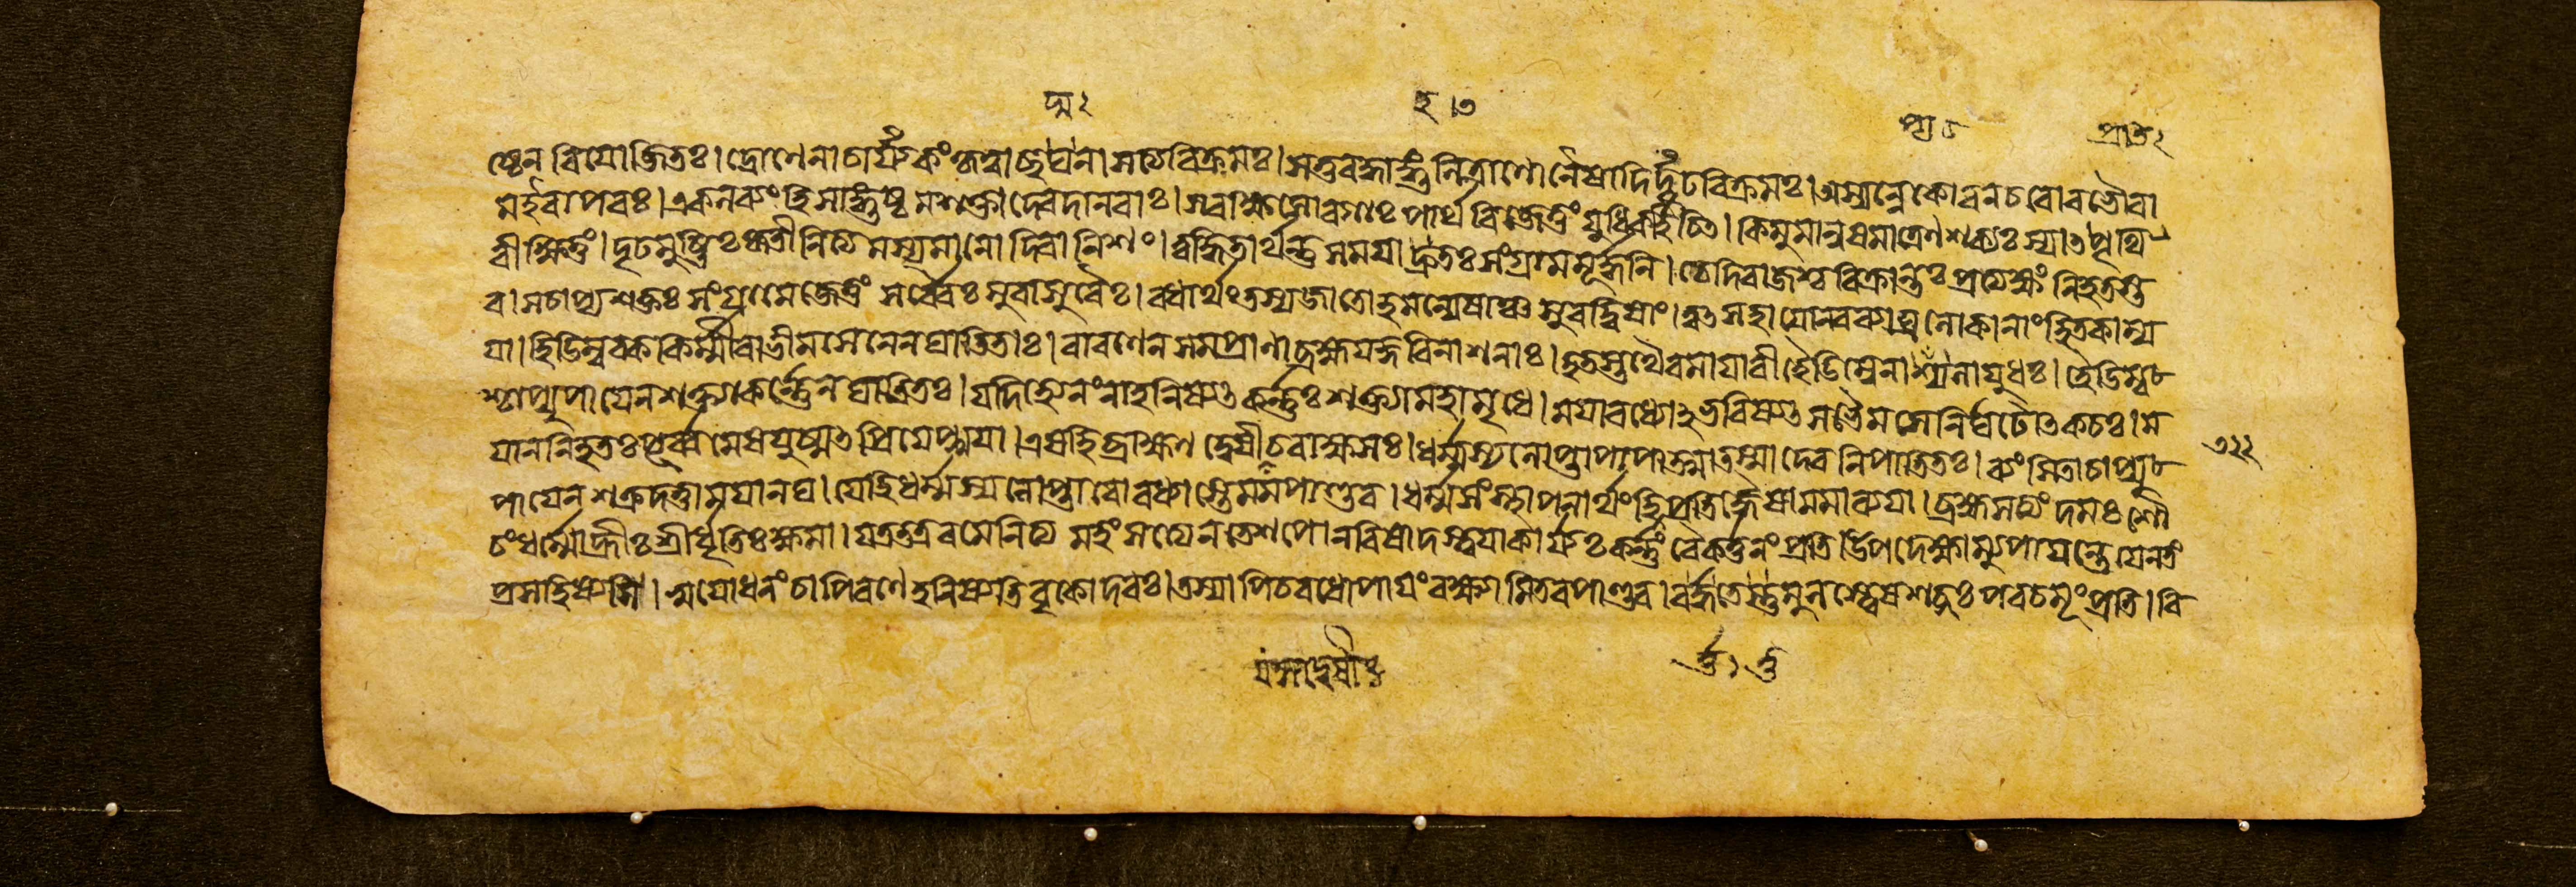 ষ্ঠেন বিযোজিতঃ। দ্রোণেনাচার্য্যকং কৃত্বা ছদ্মনা সত্যবিক্রমঃ। স তু বদ্ধাঙ্গুলিত্রাণো নৈষাদির্দৃঢবিক্রমঃ। অস্যন্নেকো বনচরো বভৌ রা
ম ইবাপরঃ। একলব্যং হি সাঙ্গুষ্ঠমশক্তা দেবদানবাঃ। সরাক্ষসোরগাঃ পার্থ বিজেতুং যুধি কর্হিচিৎ। কিমু মানুষমাত্রেণ শক্যঃ স্যাৎ প্রতি
বীক্ষিতুং। দৃঢমুষ্টিঃ কৃতী নিত্যমস্যমানো দিবানিশং। ত্বদ্ধিতার্থন্তু স ময়া হতঃ সংগ্রামমূর্দ্ধনি। চেদিরাজশ্চ বিক্রান্তঃ প্রত্যক্ষং নিহতস্ত
ব। স চাপ্যশক্তঃ সংগ্রামে জেতুং সর্ব্বৈঃ সুরাসুরৈঃ। বধার্থং তস্য জাতোহমন্যেষাঞ্চ সুরদ্বিষাং। ত্বৎসহাযো নরব্যাঘ্র লোকানাং হিতকাম্য
যা। হিডিম্ববককির্ম্মীরা ভীমসেনেন ঘাতিতাঃ। রাবণেন সমপ্রাণা ব্রহ্মযজ্ঞবিনাশনাঃ। হতস্তথৈব মাযাবী হৈডিম্বেনাপ্যলাযুধঃ। হৈডিম্ব
শ্চাপ্যুপাযেন শক্ত্যা কর্ণ্ণেন ঘাতিতঃ। যদি হ্যেনং নাহনিষ্যৎ কর্ণ্ণঃ শক্ত্যা মহামৃধে। মযা বধ্যোঽভবিষ্যৎ স ভৈমসেনির্ঘটোৎকচঃ। ম
যা ন নিহতঃ পূর্ব্বমেষ যুষ্মৎপ্রিযেপ্সযা। এষ হি ব্রাহ্মণদ্বেষী চ রাক্ষসঃ। ধর্ম্মস্য লোপ্তা পাপাত্মা তস্মাদেব নিপাতিতঃ। ব্যংসিতা চাপ্যু
পাযেন শক্রদত্তা মযানঘ। যে হি ধর্ম্মস্য লোপ্তারো বধ্যাস্তে মম পাণ্ডব। ধর্ম্মসংস্থাপনার্থং হি প্রতিজ্ঞৈষা মমাব্যযা। ব্রহ্ম সত্যং দমঃ শৌ
চং ধর্ম্মো হ্রীঃ শ্রীর্ধৃতিঃ ক্ষমা। যত্র তত্র রমে নিত্যমহং সত্যেন তে শপে। ন বিষাদস্ত্বযা কার্য্যঃ কর্ণ্ণং বৈকর্ত্তনং প্রতি। উপদেক্ষ্যাম্যুপাযন্তে যেন তং
প্রসহিষ্যসি। সুযোধনং চাপি রণে হনিষ্যতি বৃকোদরঃ। তস্যাপি চ বধোপাযং বক্ষ্যামি তব পাণ্ডব। বর্দ্ধতে তুমুলস্ত্বেষ শব্দঃ পরচমূং প্রতি। বি